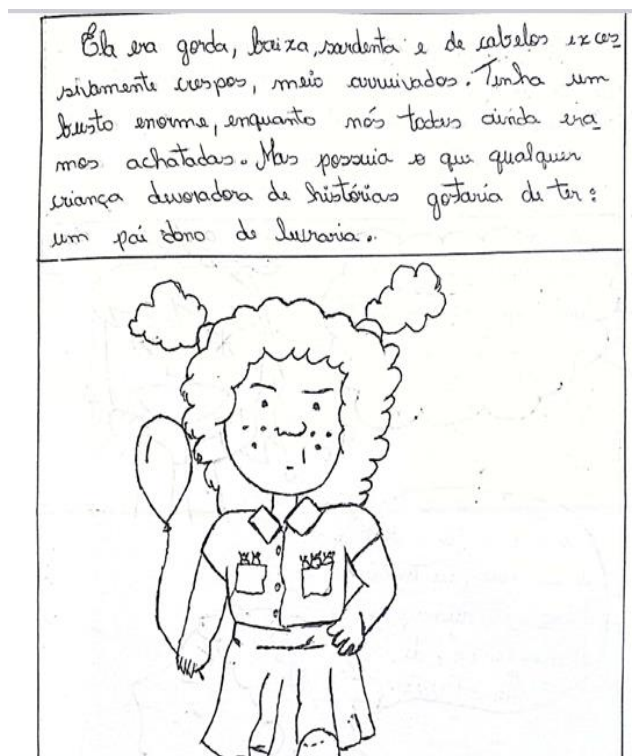 Ela era gorda, baixa, sardenta e de cabelos exces
sivamente crespos, meio arruivados. Tinha um
busto enorme, enquanto nós todas ainda era_
mos achatadas. Mas possuia o que qualquer
criança devoradora de histórias gostaría de ter:
um pai dono de livraria.